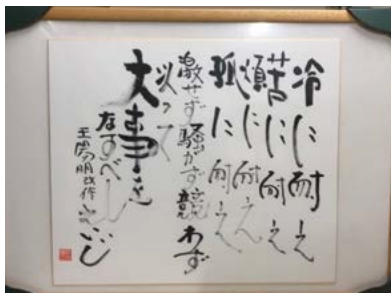 冷に耐え
苦に耐え
煩に耐え
孤に耐え
激せず騒がず競わず
以って
大事を
なすべし
王陽明改作